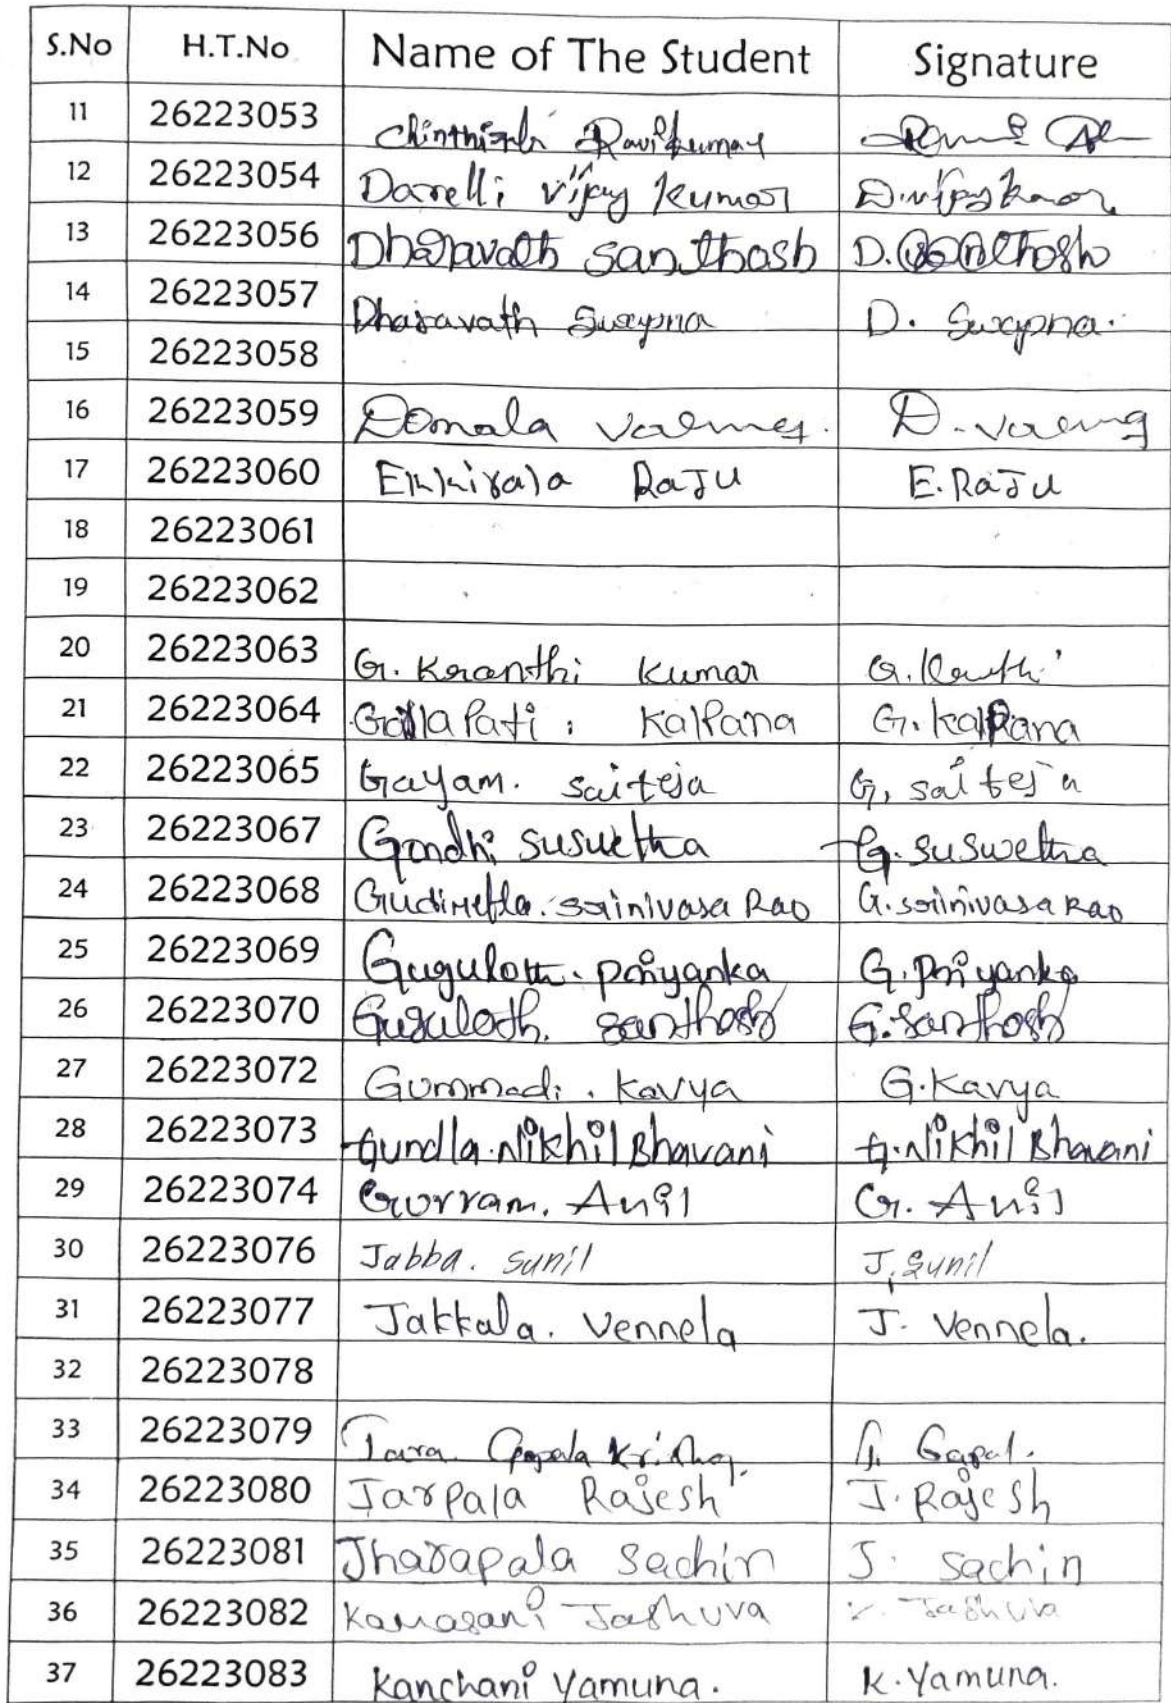 S.No H.T.No Name of The Student Signature
11 26223053 Ravikumar
12 26223054 Darelli Vijay Kumar D.Vijay Kumar
13 26223056 Dharavath Santhosh D.Santhosh
14 26223057 Dharavath Swapna D. Swapna.
15 26223058
16 26223059 Domala
17 26223060 Ekkirala RaJu E.RaJu
18 26223061
19 26223062
20 26223063 G. Kranthi Kumar G.Kranthi
21 26223064 Kalpana G.Kalpana
22 26223065 Gayam. saiteja G, saiteja
23 26223067 Gondhi suswetha G.suswetha
24 26223068 Gudimetla. srinivasa Rao G.srinivasa Rao
25 26223069 Guguloth. priyanka G.priyanka
26 26223070 Guguloth. santhosh G.Santhosh
27 26223072 Gummadi. Kavya G.Kavya
28 26223073 Gundla.Nikhil Bhavani G.Nikhil Bhavani
29 26223074 Gurram. Anil G. Anil
30 26223076 Jabba. sunil J.Sunil
31 26223077 Jakkala. Vennela J. Vennela.
32 26223078
33 26223079 Jara. Gopala Krishna. J. Gopal.
34 26223080 Jarpala Rajesh J. Rajesh
35 26223081 Jharapala Sachin J. Sachin
36 26223082 Jashuva Jashuva
37 26223083 Kanchani Yamuna. K.Yamuna.